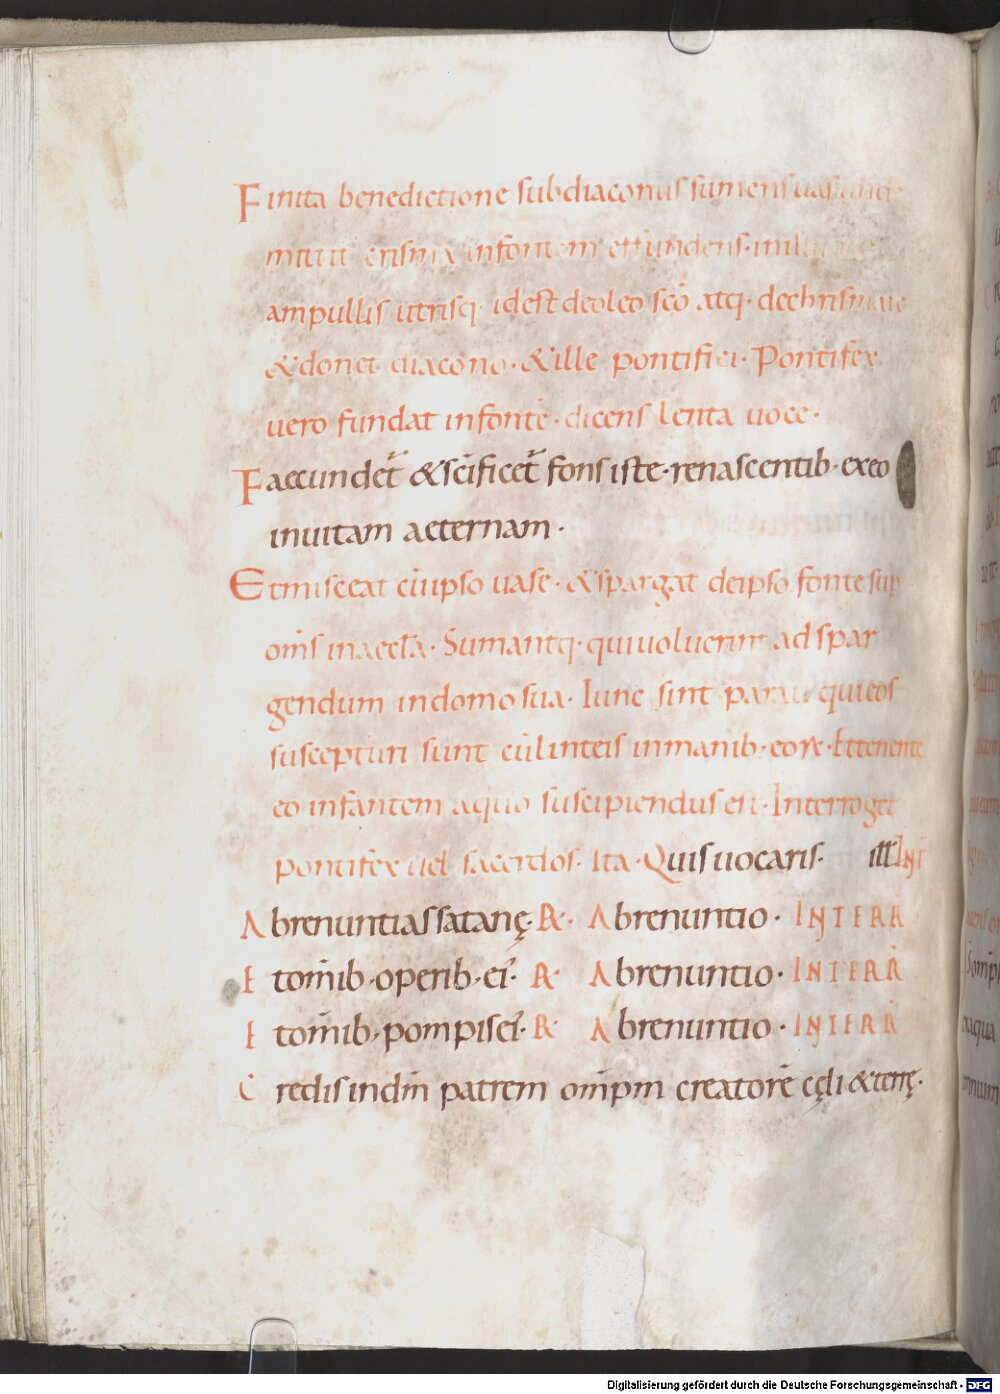 Finita benedictione subdiaconus sumens uas unde
mittit crisma infontem effundens· in
ampullis utrisq· idest deoleo sc̄o atq· dechrismate
&donet diacono· &ille pontifici· Pontifex
uero fundat infontē· dicens lenta uoce·
Faecundet̄ &sc̄ificet̄ fons iste· renascentib· exeo
inuitam aeternam·
Et misceat cū ipso uase· &spargat deipso fonte sup
om̄s inaeccl̄a· Sumantq· qui uoluerint ad spar
gendum indomo sua· Tunc sint parati quieos
suscepturi sunt cū linteis inmanib· eorum· Et tenente
eo infantem aquo suscipiendus est· Interroget
pontifex uel sacerdos· Ita· Quis uocaris· ill̄ INT
Abrenuntias satanę· R· Abrenuntio· INTERR
Et om̄ib· operib· ei᾽· R· Abrenuntio· INTERR
Et om̄ib· pompis ei᾽· R· Abrenuntio· INTERR
Credis indm̄ patrem om̄ipm creatorē cęli &terrę·
Digitalisierung gefördert durch die Deutsche Forschungsgemeinschaft - DFG